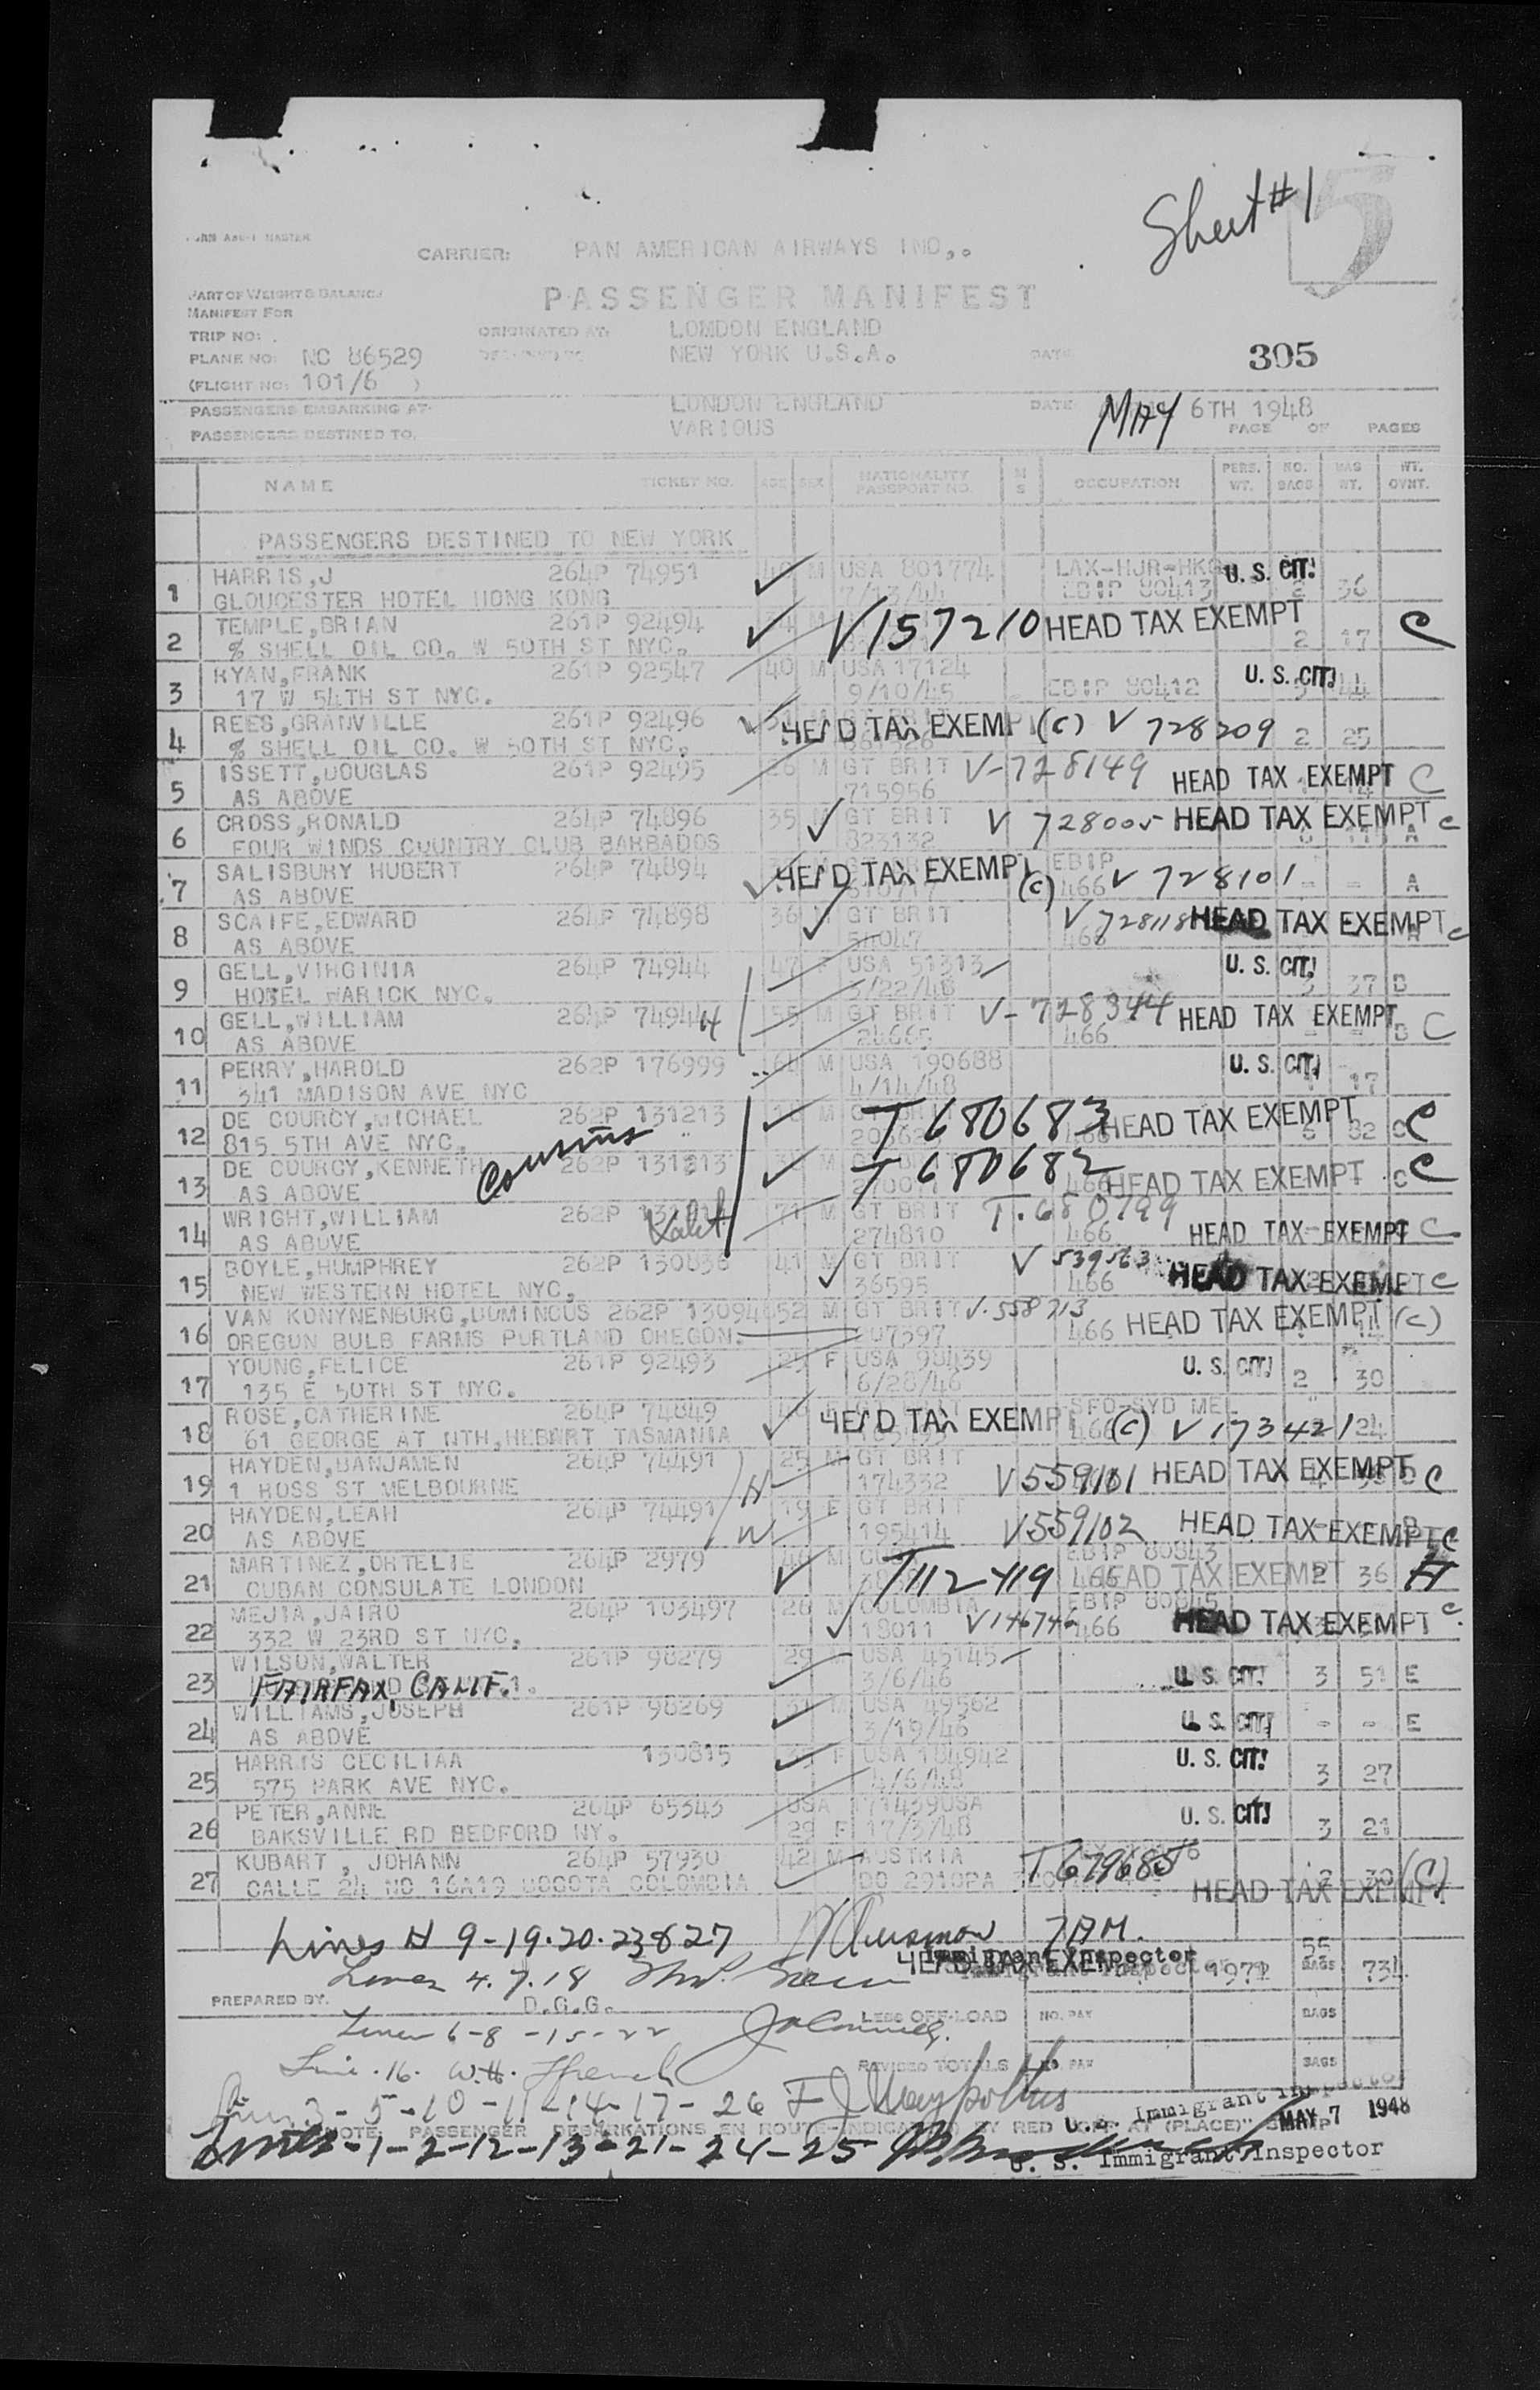 Sheet #1
5
CARRIER: PAN AMERICAN AIRWAYS INC,.
PART OF WEIGHT & BALANCE
PASSENGER MANIFEST
MANIFEST FOR
TRIP NO: ORIGINATED AT: LOMDON ENGLAND
PLANE NO: NC 86529 NEW YORK U.S.A. DATE 305
(FLIGHT NO: 101/6 )
PASSENGERS EMBARKING AT: LONDON ENGLAND DATE: MAY 6TH 1948
PASSENGERS DESTINED TO. VARIOUS PAGE OF PAGES
NAME TICKET NO. AGE SEX NATIONALITY PASSPORT NO. M S OCCUPATION PERS. WT. NO. BAGS BAG WT. WT. OVNT.
PASSENGERS DESTINED TO NEW YORK
1 HARRIS,J 264P 74951 M USA 801774 LAX-HJR-HKG U. S. CIT!
GLOUCESTER HOTEL HONG KONG EBIP 80413 2 36
2 TEMPLE,BRIAN 261P 92494 V157210 HEAD TAX EXEMPT C
% SHELL OIL CO. W 50TH ST NYC. 2 17
3 RYAN,FRANK 261P 92547 40 M USA 17124 U. S. CIT!
17 W 54TH ST NYC. 9/10/45 EBIP 80412 44
4 REES,GRANVILLE 261P 92496 HEAD TAX EXEMP (C) V 728209
% SHELL OIL CO. W 50TH ST NYC. 2 25
5 ISSETT,DOUGLAS 261P 92495 26 M GT BRIT V-728149 HEAD TAX EXEMPT C
AS ABOVE 715956
6 CROSS,RONALD 264P 74896 35 M GT BRIT V 728005 HEAD TAX EXEMPT C
FOUR WINDS COUNTRY CLUB BARBADOS 823132 A
7 SALISBURY HUBERT 264P 74894 HEAD TAX EXEMPT EBIP
AS ABOVE (C) 466 V 728101 - - A
8 SCAIFE,EDWARD 264P 74898 36 M GT BRIT V 728118 HEAD TAX EXEMPT C
AS ABOVE 54047 466
9 GELL,VIRGINIA 264P 74944 47 F USA 51313 U. S. CIT!
HOTEL WARICK NYC. 3/22/46 3 37 B
10 GELL,WILLIAM 264P 74944 55 M GT BRIT V-728344 HEAD TAX EXEMPT C
AS ABOVE 24665 466 - - B
11 PERRY,HAROLD 262P 176999 64 M USA 190688 U. S. CIT!
341 MADISON AVE NYC 4/14/48 17
12 DE COURCY,MICHAEL 262P 131213 M T 680683 HEAD TAX EXEMPT C
815 5TH AVE NYC. 82
Cousins
13 DE COURCY,KENNETH 262P 131213 M T 680682 HEAD TAX EXEMPT C
AS ABOVE 466
14 WRIGHT,WILLIAM 262P Valet 71 M GT BRIT T.680799
AS ABOVE 274810 466 HEAD TAX EXEMPT C
15 BOYLE,HUMPHREY 262P 130838 41 M GT BRIT V 539563
NEW WESTERN HOTEL NYC. 36595 466 HEAD TAX EXEMPT C
16 VAN KONYNENBURG,DOMINCUS 262P 13094 52 M GT BRIT V.558713
OREGON BULB FARMS PORTLAND OREGON. 466 HEAD TAX EXEMPT (C)
17 YOUNG,FELICE 261P 92493 F USA 98439 U. S. CIT!
135 E 50TH ST NYC. 6/28/46 2 30
18 ROSE,CATHERINE 264P 74849 HEAD TAX EXEMP SFO-SYD MEL
61 GEORGE AT NTH,HEBART TASMANIA (C) V 173421 24
19 HAYDEN,BANJAMEN 264P 74491 H 25 M GT BRIT
1 ROSS ST MELBOURNE 174332 V559101 HEAD TAX EXEMPT C
20 HAYDEN,LEAH 264P 74491 W 19 F GT BRIT
AS ABOVE 195414 V559102 HEAD TAX EXEMPT C
21 MARTINEZ,ORTELIE 264P 2979 M EBIP 80843
CUBAN CONSULATE LONDON T112419 466 HEAD TAX EXEMPT 2 36
22 MEJIA,JAIRO 264P 103497 26 M COLOMBIA EBIP 80845
332 W 23RD ST NYC. 18011 V146746 466 HEAD TAX EXEMPT C
23 WILSON,WALTER 261P 98279 29 USA 45145
FAIRFAX, CALIF. 3/6/46 U. S. CIT! 3 51 E
24 WILLIAMS,JOSEPH 261P 98269 M USA 49562
AS ABOVE 3/19/46 U. S. CIT! - - E
25 HARRIS CECILIAA 130815 F USA 184942 U. S. CIT!
575 PARK AVE NYC. 4/6/48 3 27
26 PETER,ANNE 264P 65343 USA 171439USA U. S. CIT!
BAKSVILLE RD BEDFORD NY. 29 F 17/3/48 3 21
27 KUBART , JOHANN 264P 57930 42 M AUSTRIA T 679685
CALLE 24 NO 16A19 BOGOTA COLOMBIA HEAD TAX EXEMPT 2 30 (C)
Lines # 9-19-20-23&27 7AM.
Immigrant Inspector
Lines 4.7.18 HEAD TAX EXEMPT 1971 55 BAGS 734
PREPARED BY. D.G.G.
LESS OFF-LOAD NO. PAX BAGS
Lines 6-8-15-22
REVISED TOTALS NO. PAX BAGS
Line.16. W.H. French
Lines 3-5-10-11-14-17-26
U.S. Immigrant Inspector
NOTE PASSENGER DEBARKATIONS EN ROUTE INDICATED BY RED "OFF AT (PLACE)" STAMP
MAY 7 1948
Lines-1-2-12-13-21-24-25
U. S. Immigrant Inspector